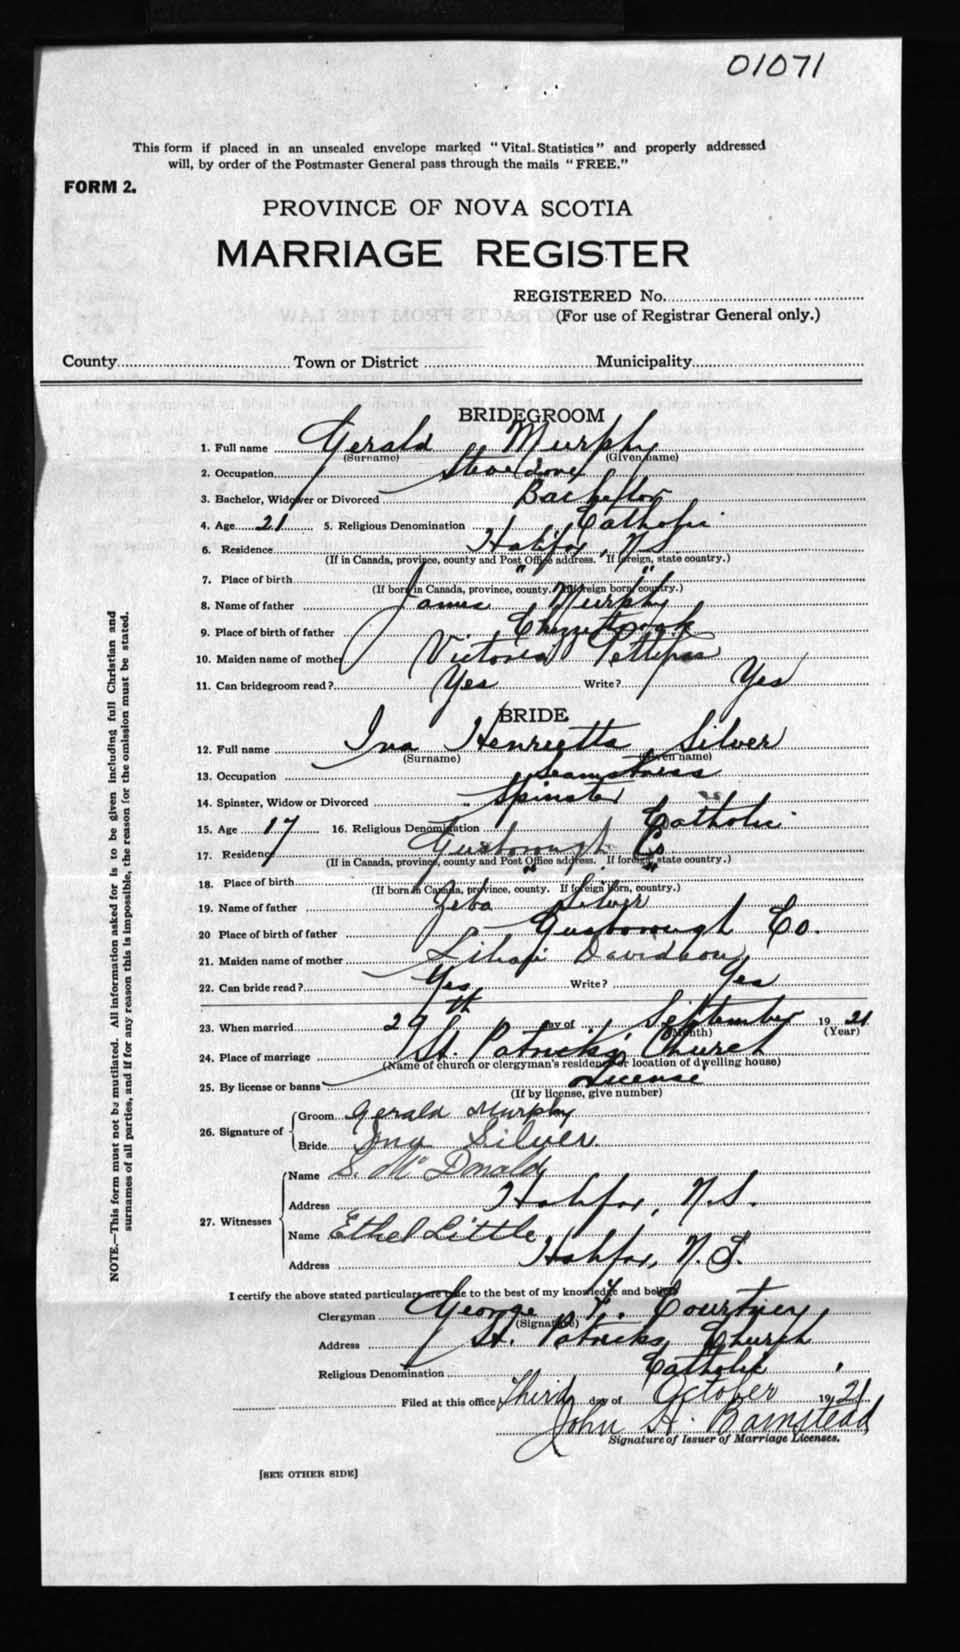 01071
This form if placed in an unsealed envelope marked "Vital Statistics" and properly addressed
will, by order of the Postmaster General pass through the mails "FREE."
FORM 2.
PROVINCE OF NOVA SCOTIA
MARRIAGE REGISTER
REGISTERED No.
(For use of Registrar General only.)
County Town or District Municipality
BRIDEGROOM
1. Full name Gerald Murphy
(Surname) (Given name)
2. Occupation Stevedore
3. Bachelor, Widower or Divorced Bachelor
4. Age 21 5. Religious Denomination Catholic
6. Residence Halifax, N.S.
(If in Canada, province, county and Post Office address. If foreign, state country.)
7. Place of birth " "
(If born in Canada, province, county. If foreign born, country.)
8. Name of father James Murphy
9. Place of birth of father Chezzetcook
10. Maiden name of mother Victoria Pettipas
11. Can bridegroom read? Yes Write? Yes
BRIDE
12. Full name Ina Henrietta Silver
(Surname) (Given name)
13. Occupation Seamstress
14. Spinster, Widow or Divorced Spinster
15. Age 17 16. Religious Denomination Catholic
17. Residence Guysborough Co.
(If in Canada, province, county and Post Office address. If foreign, state country.)
18. Place of birth " "
(If born in Canada, province, county. If foreign born, country.)
19. Name of father Zeba Silver
20 Place of birth of father Guysborough Co.
21. Maiden name of mother Davidson
22. Can bride read? Yes Write? Yes
23. When married 29th day of September 1921
(Month) (Year)
24. Place of marriage St. Patrick's Church
(Name of church or clergyman's residence or location of dwelling house)
25. By license or banns License
(If by license, give number)
26. Signature of Groom Gerald Murphy
Bride Ina Silver
27. Witnesses Name S. McDonald
Address Halifax, N.S.
Name Ethel Little
Address Halifax, N.S.
I certify the above stated particulars are true to the best of my knowledge and belief
Clergyman George F. Courtney
(Signature)
Address St. Patricks Church
Religious Denomination Catholic
Filed at this office Third day of October 1921
John A. Barnstead
Signature of Issuer of Marriage Licenses.
[SEE OTHER SIDE]
NOTE.—This form must not be mutilated. All information asked for is to be given including full Christian and
surnames of all parties, and if for any reason this is impossible, the reason for the omission must be stated.